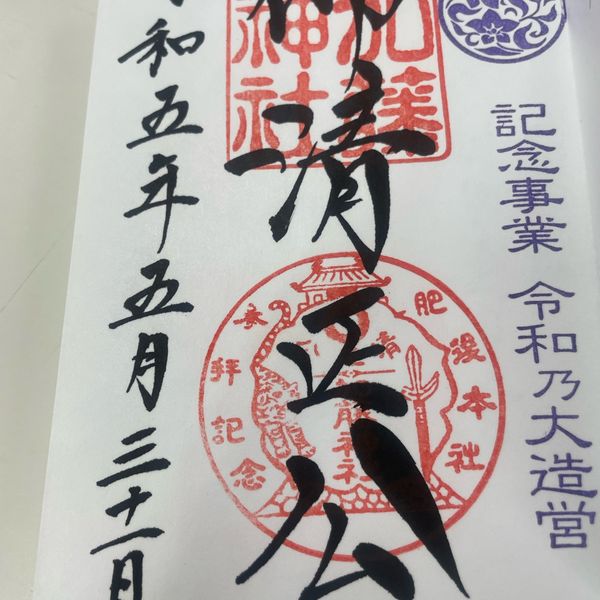 記念事業 令和乃大造営
加藤神社
清正公
肥後本社
参拝記念
加藤神社
令和五年五月三十一日